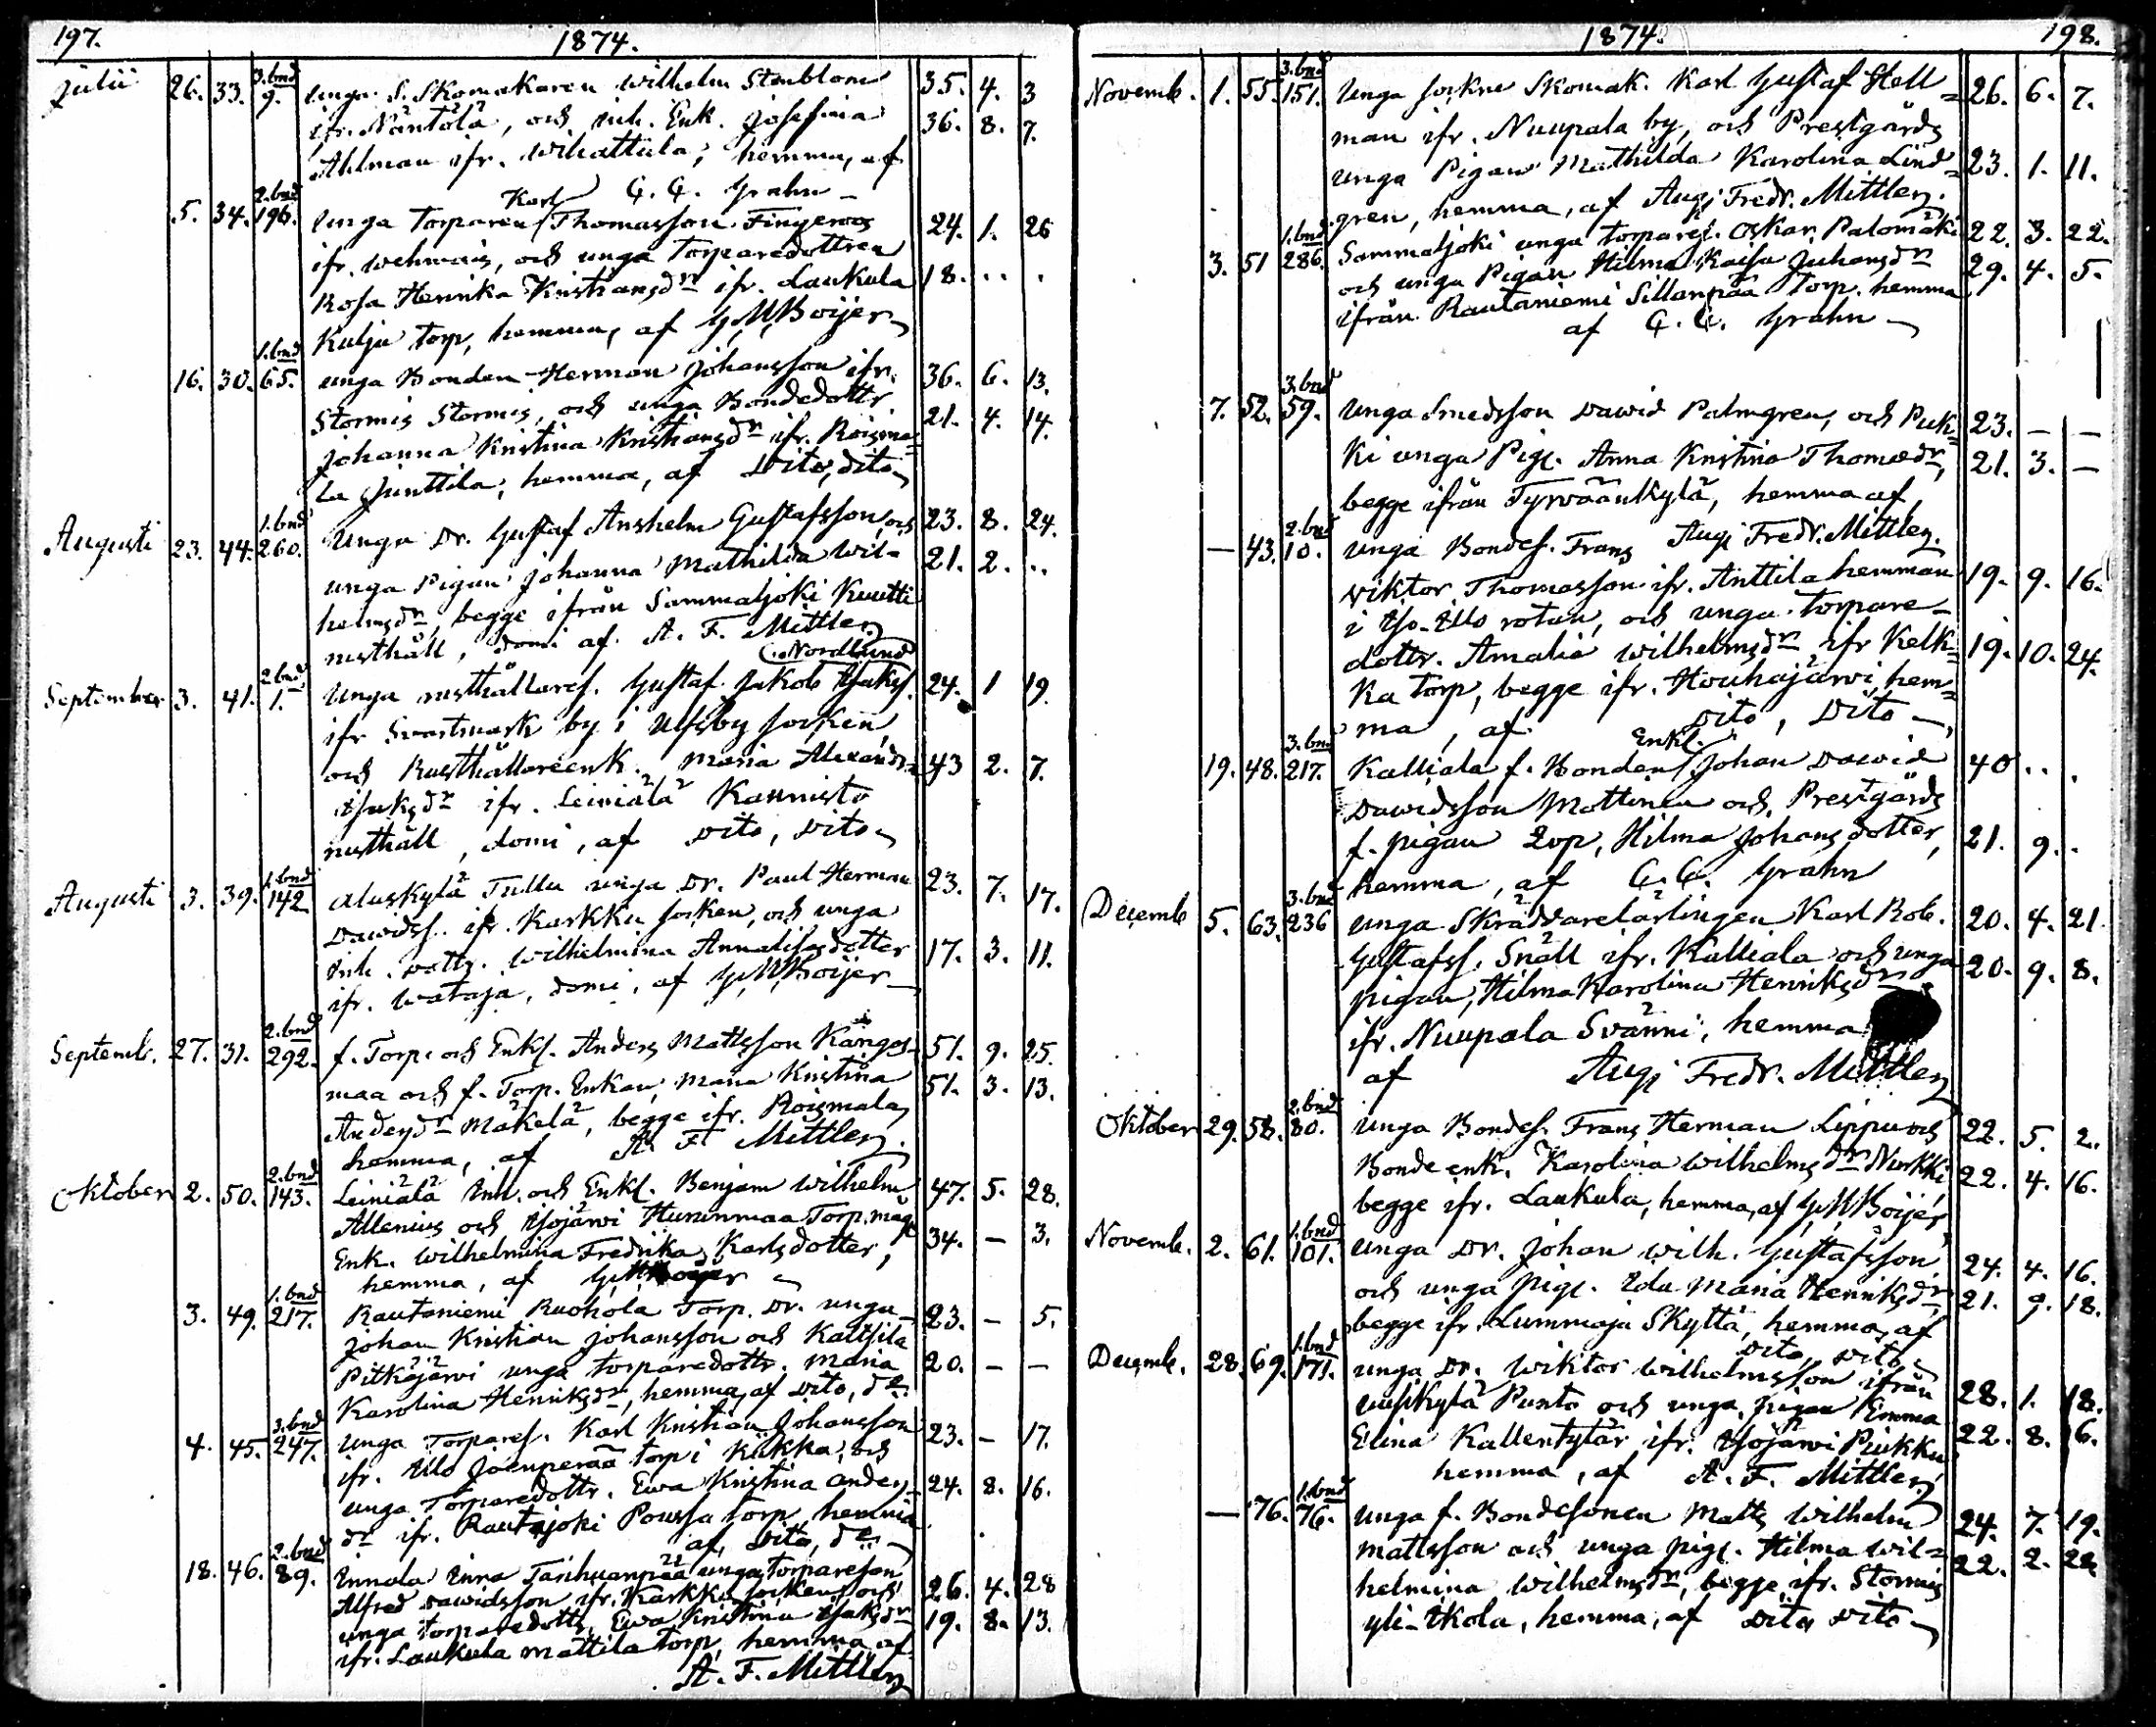 197.
1874.
Julii 26. 33. 3. bnd 9. unga S. Skomakaren Wilhelm Stenblom 35. 4. 3
ifr. Näntölä, och inh. Enk. Josefina 36. 8. 7.
Ahlman ifr. Wihattula, hemma, af
C. C. Grahn
5. 34. 2. bnd 196. unga Torparen Karl Thomasson Fingeroos 24. 1. 26
ifr. Wehmais, och unga Torparedottren
Rosa Henrika Kristiansdr ifr. Laukula 18. . . .
Kulju torp, hemma, af G. M. Boijer
16. 30. 1. bnd 65. unga Bonden Herman Johansson ifr. 36. 6. 13.
Stormis Stormis, och unga Bondedottr 21. 4. 14.
Johanna Kristina Kristiansdr ifr. Roisma-
la Junttila, hemma, af Dito, dito
Augusti 23. 44. 1. bnd 260. Unga Dr. Gustaf Anshelm Gustafsson, och 23. 8. 24.
unga Pigan Johanna Mathilda Wil- 21. 2. ..
helmsdr, begge ifrån Sammaljoki Knutti
rusthåll, domi af A. F. Mittler
September 3. 41. 2 bnd 1. Unga rusthållares. Gustaf Jakob Isaks. (Nordlund 24. 1 19.
ifr Svartmark by i Ulfsby socken
och Rusthållareenk. Maria Alexandra 43 2. 7.
Isaksdr ifr. Leiniälä Kaunisto
rusthåll, domi, af Dito, Dito
Augusti 3. 39. 1. bnd 142 Aluskylä Tullu unga Dr. Paul Herman 23. 7. 17.
Dawidss. ifr. Karkku socken, och unga
Inh. dottr. Wilhelmina Annalisasdotter 17. 3. 11.
ifr. Wataja, domi, af G. M. Boijer
Septemb. 27. 31. 2. bnd 292. f. Torp. och Enkl. Anders Mattsson Kangas- 51. 9. 25.
maa och f. Torp. Enkan, Maria Kristina 51. 3. 13.
Andersdr Mäkelä, begge ifr. Roismala,
hemma, af A. F. Mittler.
Oktober 2. 50. 2. bnd 143. Leiniälä Inh. och Enkl. Benjam Wilhelm 47. 5. 28.
Allenius och Yojärwi Hurunmaa Torp. mag
Enk. Wilhelmina Fredrika Karlsdotter, 34. - 3.
hemma, af G. M. Boijer
3. 49. 1. bnd 217. Rautaniemi Ruohola Torp. Dr. unga 23. - 5.
Johan Kristian Johansson och Kaltsila
Pitkäjärwi unga torparedottr. Maria 20. - -
Karolina Henriksdr, hemma, af Dito, do
4. 45. 3. bnd 247. unga Torpares. Karl Kristian Johansson 23. - 17.
ifr. Illo Joenperää torp i Kiikka, och
unga Torparedottr. Ewa Kristina Anders- 24. 8. 16.
dr ifr. Rautajoki Poussa torp, hemma
af Dito, do
18. 46. 2. bnd 89. Innala Inna Tanhuanpää unga torpareson 26. 4. 28
Alfred Dawidsson ifr. Karkku socken, och
unga torparedottr. Ewa Kristina Isaksdr 19. 8. 13.
ifr. Laukula Mattila torp, hemma, af
A. F. Mittler
1874.
198.
Novemb. 1. 55. 3. bnd 151. Unga sockne Skomak. Karl Gustaf Hell- 26. 6. 7.
man ifr. Nuupala by, och Prestgårds
unga Pigan Mathilda Karolina Lind- 23. 1. 11.
gren, hemma, af Aug. Fredr. Mittler.
3. 51 1. bnd 286. Sammaljoki unga torpares. Oskar Palomäki 22. 3. 22.
och unga Pigan Hilma Kaisa Juhansdr 29. 4. 5.
ifrån Rautaniemi Sillanpää Torp. hemma
af C. C. Grahn
7. 52. 3. bnd 59. Unga Smedsson Dawid Palmgren, och Puk- 23. - -
ki unga Pig. Anna Kristina Thomasdr, 21. 3. -
begge ifrån Tyrwäänkylä, hemma af
Aug. Fredr. Mittler.
- 43. 2. bnd 10. unga Bondes. Frans
Viktor Thomasson ifr. Anttila hemman 19. 9. 16.
i Iso-Illo rotan, och unga Torpare-
dottr. Amalia Wilhelmsdr ifr Kelk- 19. 10. 24.
ka Torp, begge ifr. Houhajärwi, hem-
ma, af Dito, Dito
19. 48. 3. bnd 217. Kalliala f. Bonden Enkl. Johan Dawid 40 . . .
Dawidsson Mattinen och Prestgårds
f. pigan Lop, Hilma Johans dotter, 21. 9. .
hemma, af C. C. Grahn
Decemb 5. 63. 3. bnd 236 unga Skräddarelärlingen Karl Rob. 20. 4. 21
Gustafss. Snäll ifr. Kalliala och unga 20. 9. 8.
pigan, Hilma Karolina Henriksdr
ifr. Nuupala Svänni, hemma
af Aug. Fredr. Mittler
Oktober 29. 58. 2. bnd 80. unga Bondes. Frans Herman Lippu och 22. 5. 2.
Bonde enk. Karolina Wilhelmsdr Nurkki 22. 4. 16.
begge ifr. Laukula, hemma, af G. M. Boijer
Novemb. 2. 61. 1. bnd 101. unga Dr. Johan Wilh. Gustafsson 24. 4. 16.
och unga pig. Ida Maria Henriksdr, 21. 9. 18.
begge ifr. Lummaja Skyttä, hemma, af
Dito, Dito
Decemb. 28. 69. 1. bnd 171. unga Dr. Wiktor Wilhelmsson ifrån
uusikylä Punto och unga pigan Emma 28. 1. 18.
Elina Kallentytär ifr. Yojärwi Piukku 22. 8. 6.
hemma, af A. F. Mittler
- 76. 1. bnd 76. unga f. Bondesonen Matts Wilhelm 24. 7. 19.
Mattsson och unga pig. Hilma Wil- 22. 2. 22
helmina Wilhelmsdr, begge ifr. Stormis
yli-Ikola, hemma, af Dito Dito